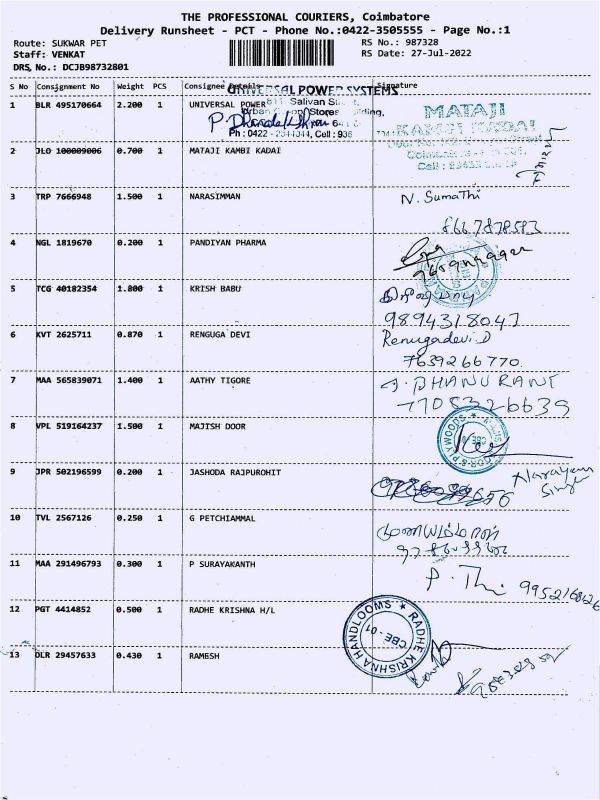 THE PROFESSIONAL COURIERS, Coimbatore
Delivery Runsheet - PCT - Phone No.:0422-3505555 - Page No.:1
Route: SUKWAR PET
RS No.: 987328
Staff: VENKAT
RS Date: 27-Jul-2022
DRS, No.: DCJB98732801
S No Consignment No Weight PCS Consignee Details Signature
UNIVERSAL POWER SYSTEMS
1 BLR 495170664 2.200 1 UNIVERSAL POWER
Salivan
Stores
Ph : 0422 - Cell : 936
MATAJI
KAMBI KADAI
2 JLO 100009006 0.700 1 MATAJI KAMBI KADAI
3 TRP 7666948 1.500 1 NARASIMMAN N. SumaThi
8667878583
4 NGL 1819670 0.200 1 PANDIYAN PHARMA
5 TCG 40182354 1.800 1 KRISH BABU
9894318047
6 KVT 2625711 0.870 1 RENGUGA DEVI Renugadevi.D
7639266770
7 MAA 565839071 1.400 1 AATHY TIGORE
7708326639
8 VPL 519164237 1.500 1 MAJISH DOOR
9 JPR 502196599 0.200 1 JASHODA RAJPUROHIT Narayan
Singh
10 TVL 2567126 0.250 1 G PETCHIAMMAL
11 MAA 291496793 0.300 1 P SURAYAKANTH
12 PGT 4414852 0.500 1 RADHE KRISHNA H/L
RADHE KRISHNA HANDLOOMS
CBE - 01
13 DLR 29457633 0.430 1 RAMESH